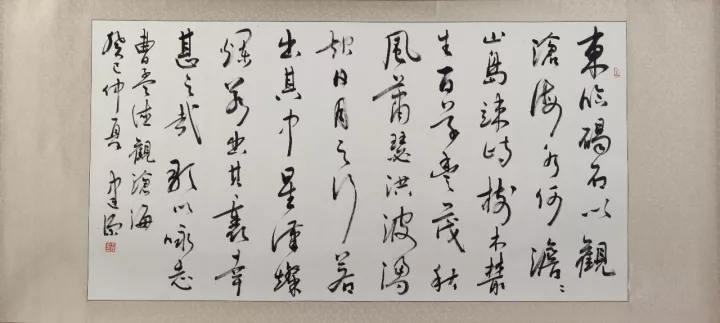 東臨碣石以觀
滄海水何澹〻
山島竦峙樹木叢
生百草豐茂秋
風蕭瑟洪波湧
起日月之行若
出其中星漢燦
爛若出其裏幸
甚至哉歌以詠志
曹孟德觀滄海
癸巳仲夏 建